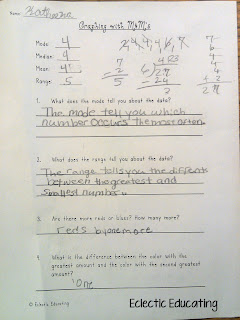 Name: Katherine
Graphing with M&M's
Mode: 4
Median: 4
Mean: 4
Range: 5
2, 4, 4, 4, 6, 7
7
2
5
1. What does the mode tell you about the data?
The mode tell you which
number occurs the most often.
2. What does the range tell you about the data?
The range tells you the difference
between the greatest and
smallest number.
3. Are there more reds or blues? How many more?
reds by one more
4. What is the difference between the color with the
greatest amount and the color with the second greatest
amount?
One
© Eclectic Educating
Eclectic Educating